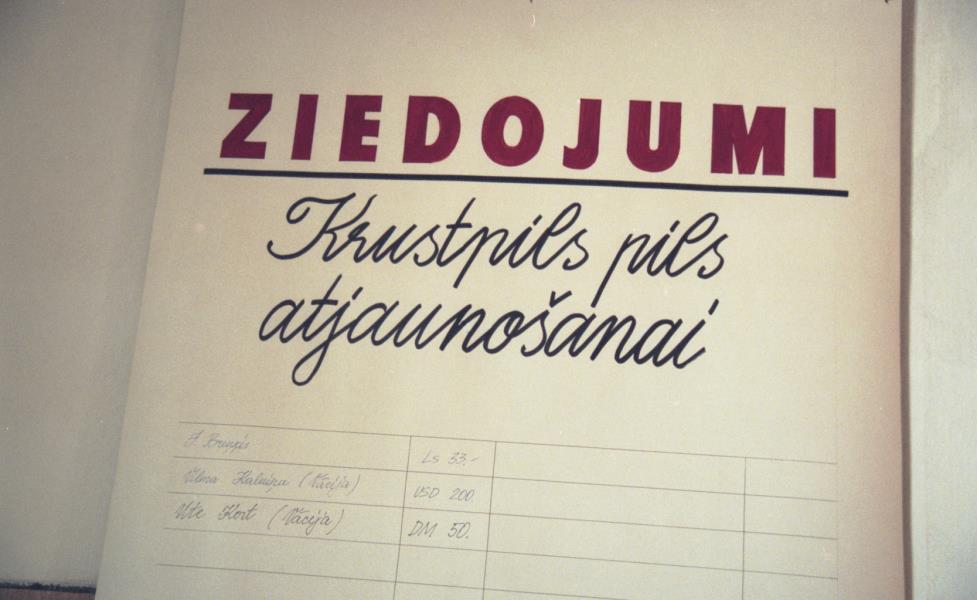 ZIEDOJUMI
Krustpils pils
atjaunošanai
Ls 33.-
Vilma Kalniņa (Vācija) USD 200.
Ute Kort (Vācija) DM 50.